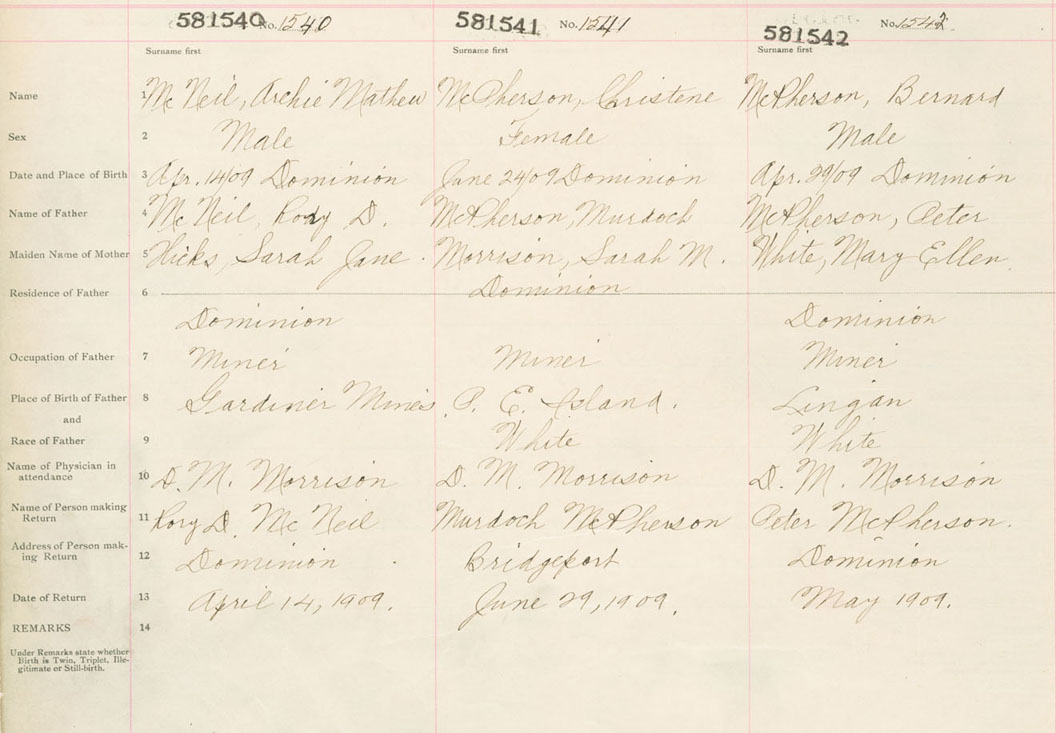 581540 No. 1540 581541 No. 1541 581542 No. 1542
Surname first Surname first Surname first
Name 1 McNeil, Archie Mathew McPherson, Christene McPherson, Bernard
Sex 2 Male Female Male
Date and Place of Birth 3 Apr. 14/09 Dominion June 24/09 Dominion Apr. 29/09 Dominion
Name of Father 4 McNeil, Rory D. McPherson, Murdoch McPherson, Peter
Maiden Name of Mother 5 Hicks, Sarah Jane. Morrison, Sarah M. White, Mary Ellen.
Residence of Father 6 Dominion
Dominion Dominion
Occupation of Father 7 Miner Miner Miner
Place of Birth of Father 8 Gardiner Mines P. E. Island. Lingan
and
Race of Father 9 White White
Name of Physician in
attendance 10 D. M. Morrison D. M. Morrison D. M. Morrison
Name of Person making
Return 11 Rory D. McNeil Murdoch McPherson Peter McPherson.
Address of Person mak-
ing Return 12 Dominion Bridgeport Dominion
Date of Return 13 April 14, 1909. June 29, 1909. May 1909.
REMARKS 14
Under Remarks state whether
Birth is Twin, Triplet, Ille-
gitimate or Still-birth.